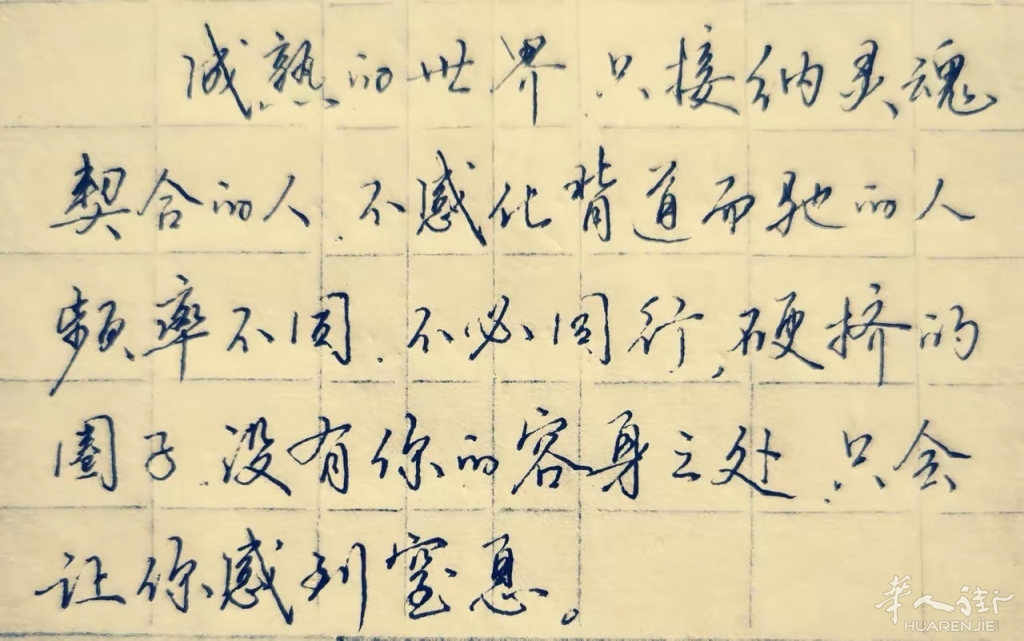 成熟的世界 只接纳灵魂
契合的人.不感化背道而驰的人
频率不同.不必同行,硬挤的
圈子.没有你的容身之处.只会
让你感到窒息。
华人街
HUARENJIE